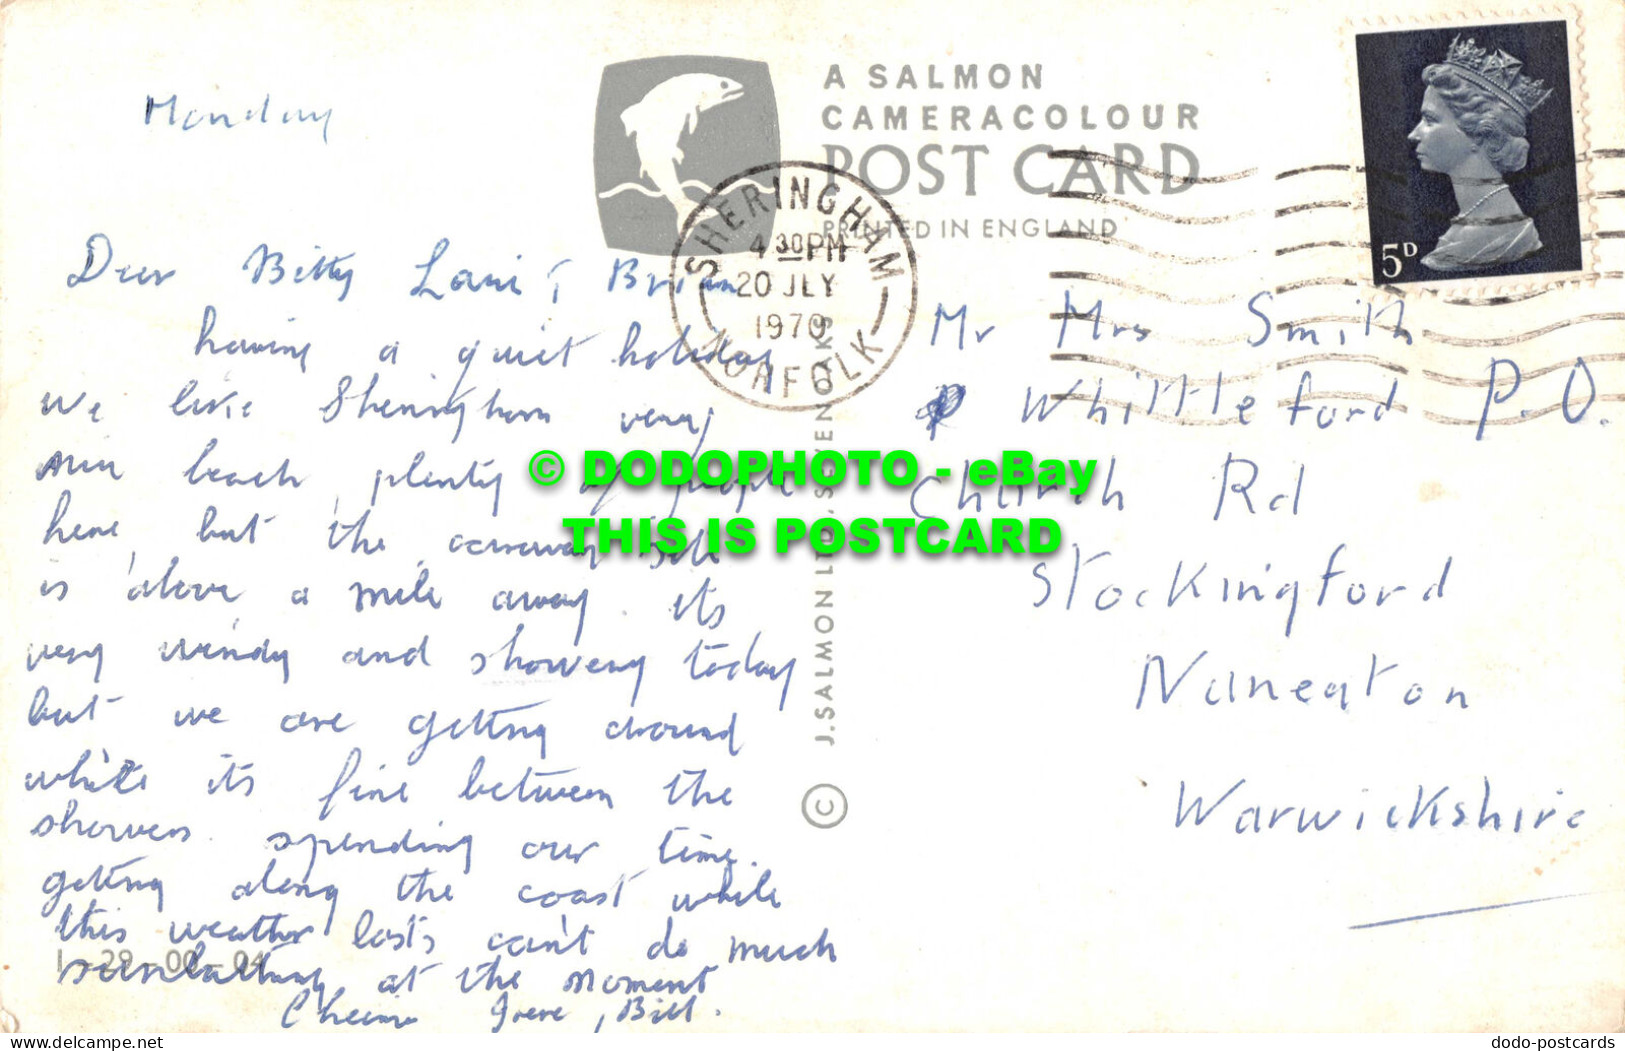 Monday
A SALMON
CAMERACOLOUR
POST CARD
PRINTED IN ENGLAND
SHERINGHAM
4 30PM
20 JLY
1970
NORFOLK
5D
Dear Betty Lani & Brian
having a quiet holiday
we like Sheringham very
nice beach, plenty of people
here, but the caravan site
is above a mile away. its
very windy and showery today
but we are getting around
while its fine between the
showers. spending our time.
getting along the coast while
this weather lasts can't do much
sunbathing at the moment
Cheerio Irene, Bill.
1-29-00-04
J. SALMON LTD., SEVENOAKS ©
Mr Mrs Smith
Whittleford P.O.
Church Rd
Stockingford
Nuneaton
Warwickshire
© DODOPHOTO - eBay
THIS IS POSTCARD
Ak-Ansichtskarten.de
dodo-postcards